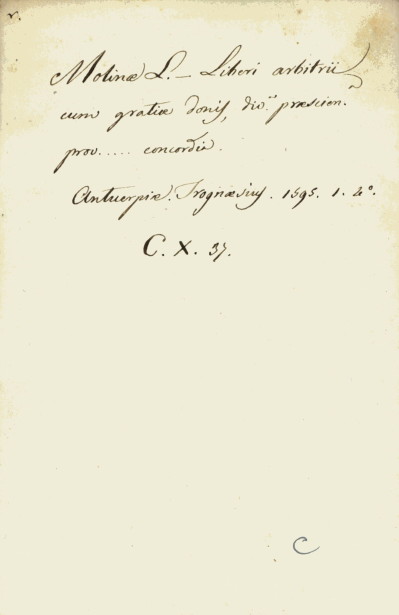 r.
Molinæ L. – Liberi arbitrii
cum gratiæ donis, div.ª præscien.ª
prov..... concordia.
Antuerpiæ. Trognæsius. 1595. 1. 4°.
C. X. 37.
C